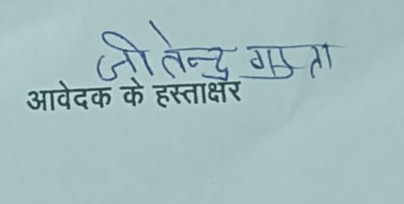 जीतेन्द्र गुप्ता
आवेदक के हस्ताक्षर